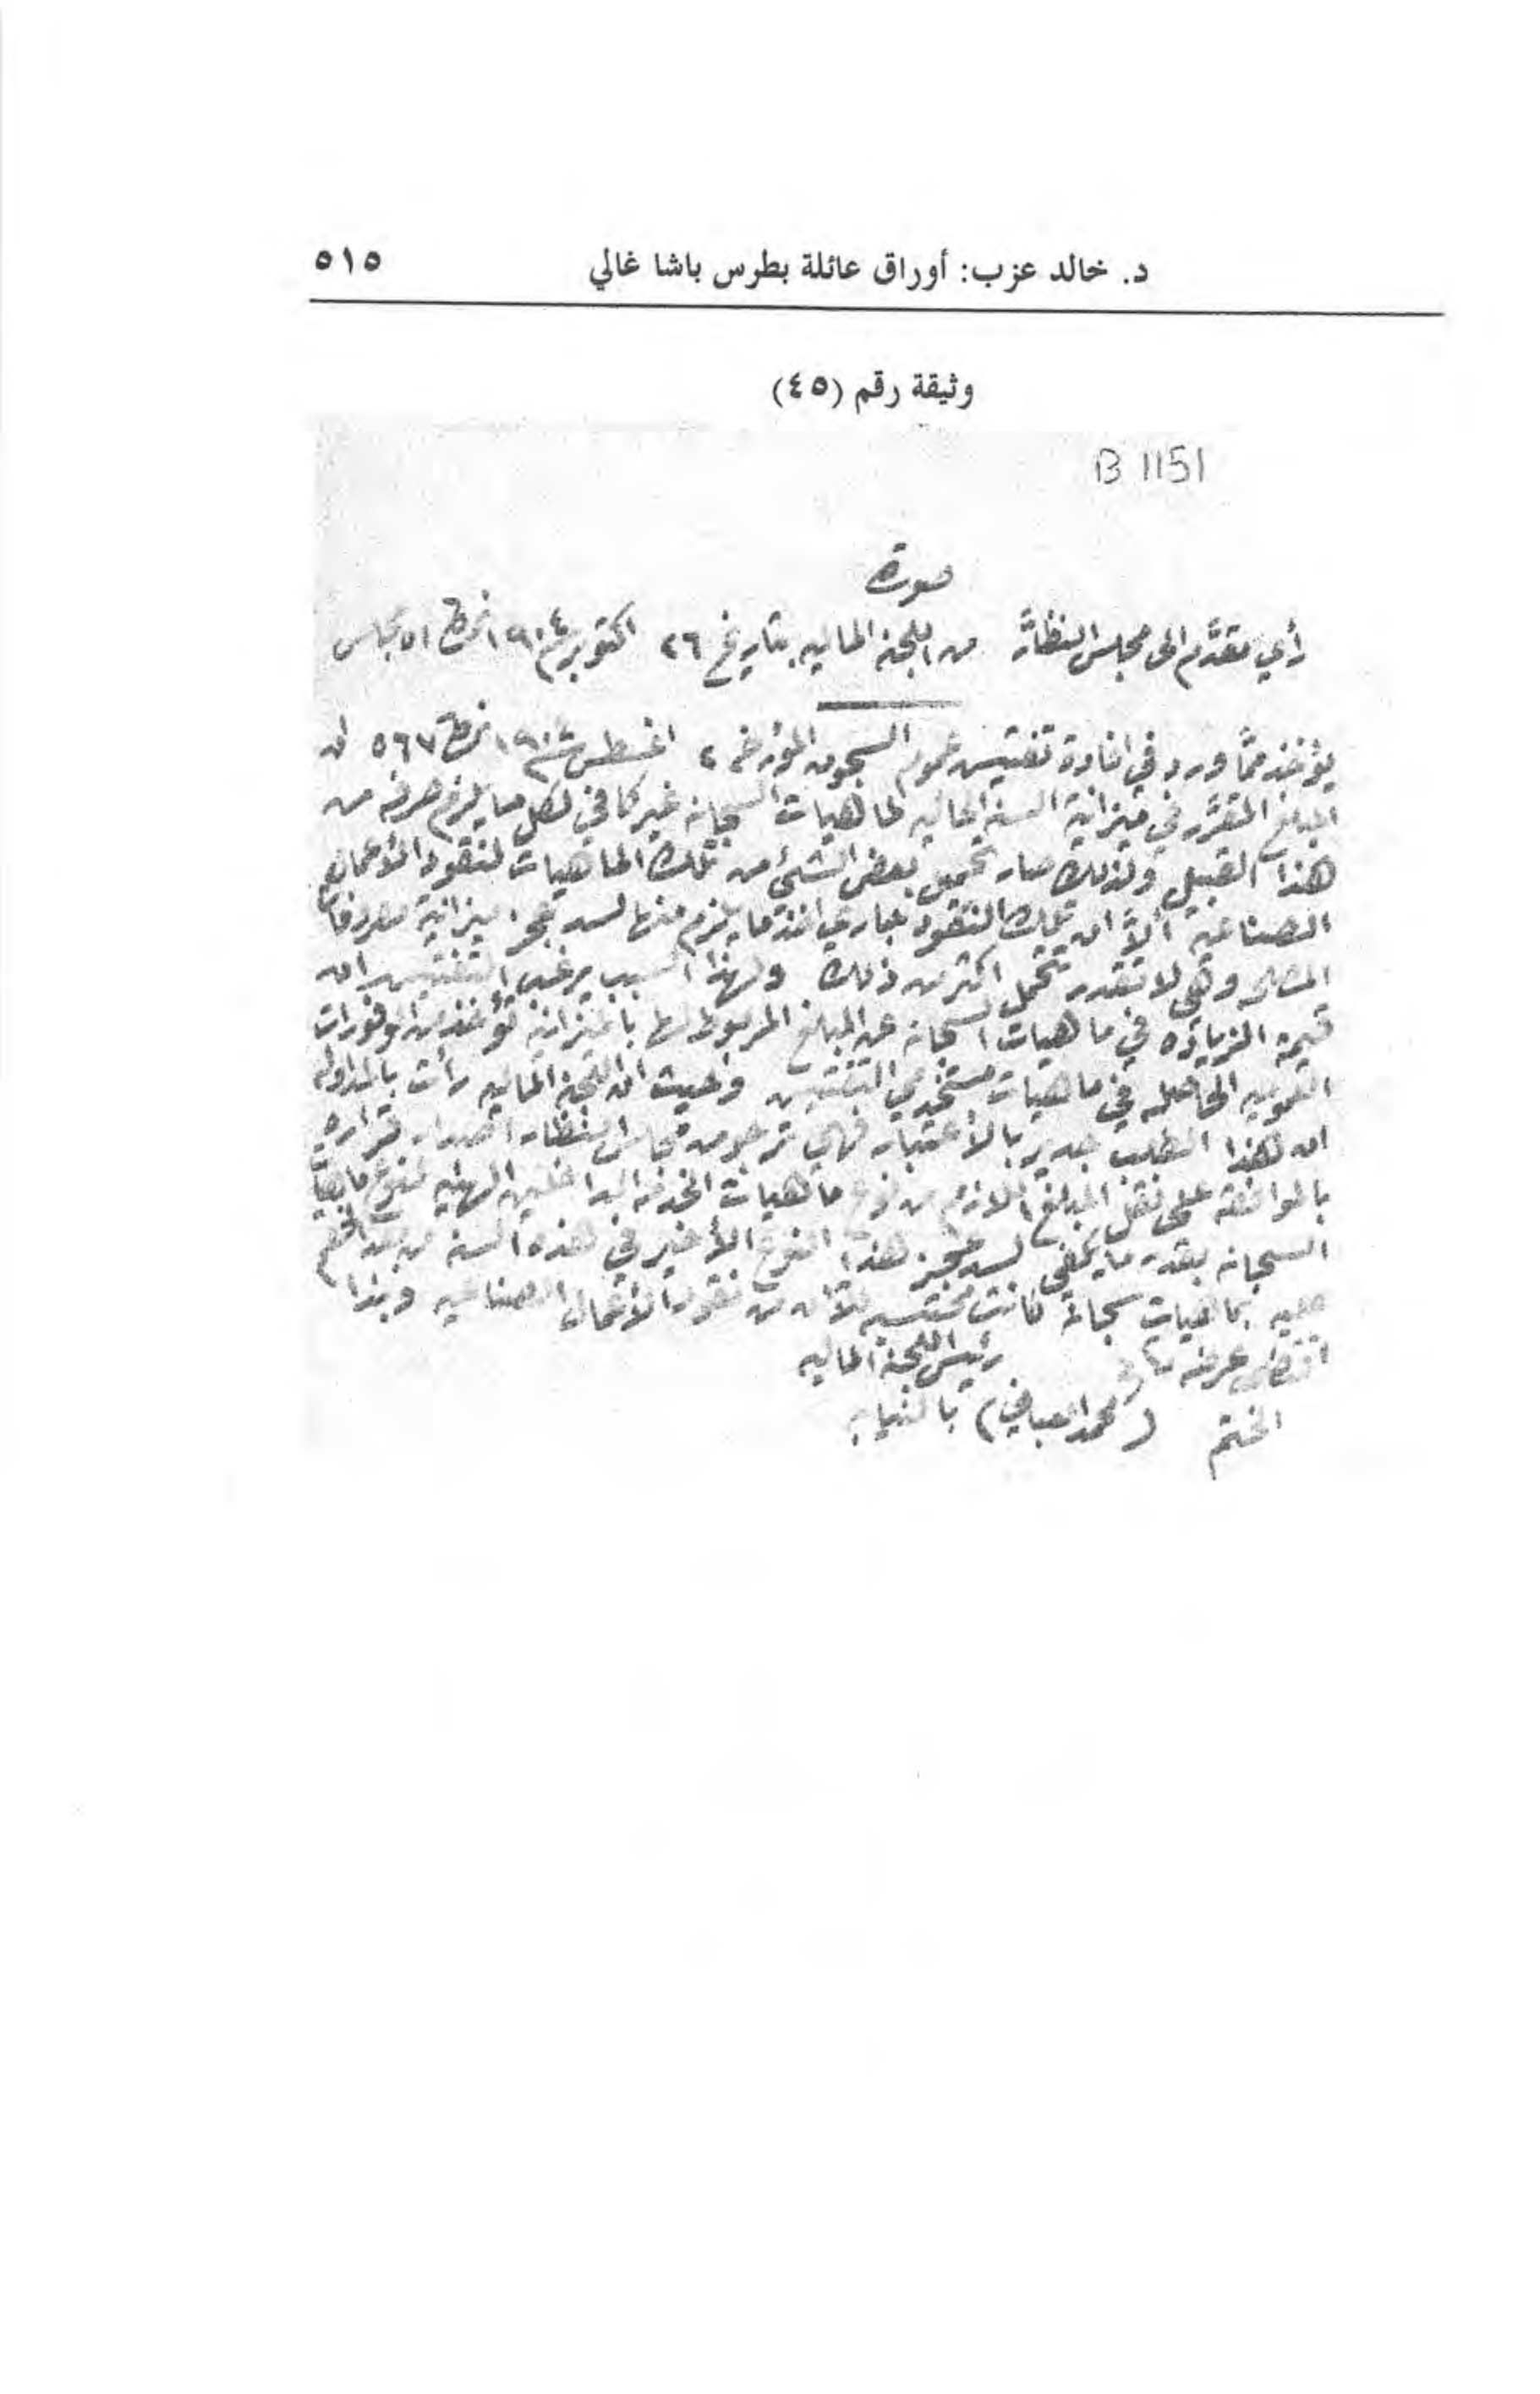 د. خالد عزب: أوراق عائلة بطرس باشا غالي ٥١٥
وثيقة رقم (٤٥)
B 1151
صورة
رأي مقدَّم الى مجلس النظار من اللجنة الماليه بتاريخ ٢٦ اكتوبر نمرة ٥١ مجلس
يؤخذ ممَّا ورد في افادة تفتيش عموم السجون المؤرخه ٢ اغسطس نمرة ٥٦٧ ان
المبلغ المقرَّر في ميزانية السنة الحاليه لماهيات السجانه غير كافي لكل ما يلزم صرفه من
هذا القبيل ولذلك صار تحميل بعض الشئ من تلك الماهيات لنقود الأعمال
الصناعية ألاَّ ان تلك النقود جاري اخذ ما يلزم منها لسد عجز ميزانية مصروفات
المصلحه وهي لا تقدر تتحمل اكثر من ذلك ولهذا السبب يرغب التفتيش ان
قيمة الزياده في ماهيات السجانه عن المبلغ المربوط لها بالميزانية تؤخذ من الوفورات
العموميه الحاصله في ماهيات مستخدمي التفتيش وحيث ان اللجنة الماليه رأت بالمداوله
ان هذا الطلب جدير بالأعتبار فهي ترجو من مجلس النظار اصدار قراره
بالموافقة على نقل المبلغ اللازم من فرع ماهيات الخدمة الداخلين الهيئه لفرع ماهيات
السجانه بقدر ما يكفي لسد عجز هذا الفرع الأخير في هذه السنة من بعد الخصم
عليه بماهيات سجانة كانت محتسبه للآن من نقود الأعمال الصناعيه وبذا
اقتضى عرضه
رئيس اللجنة الماليه
الختم (محمد العباني) بالنيابه